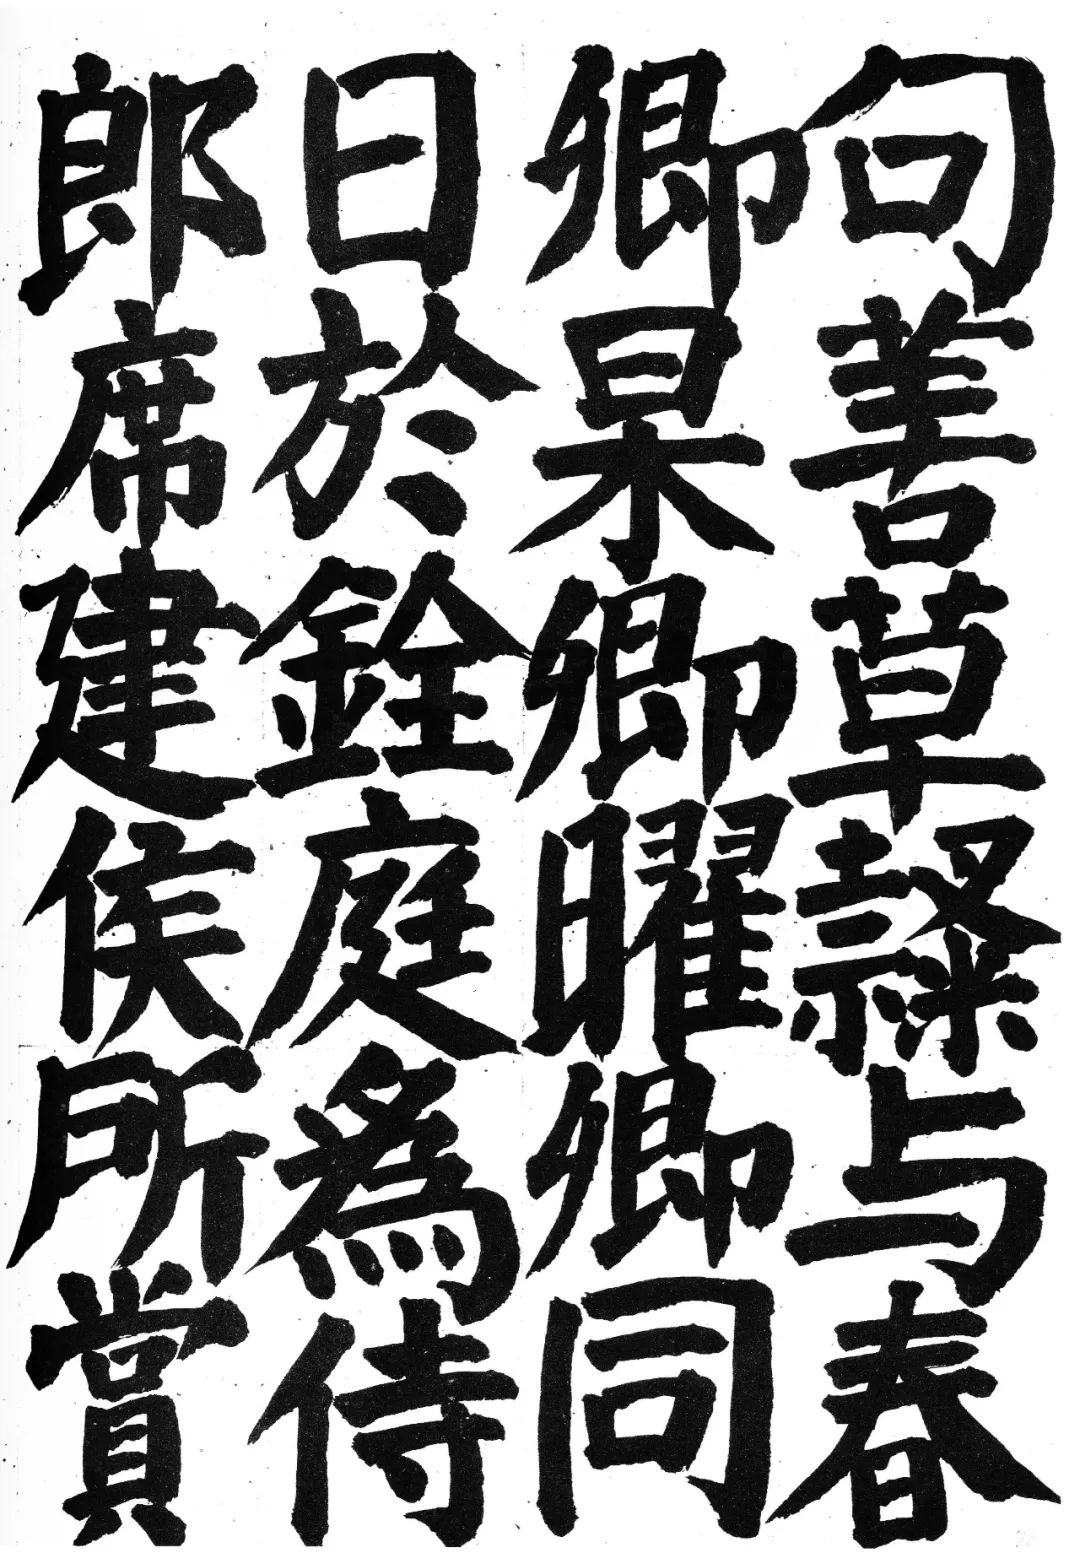 句善草隸与春
卿杲卿曜卿同
日於銓庭爲侍
郎席建侯所賞